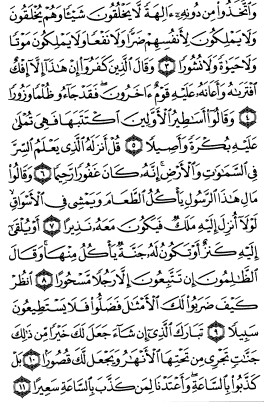 وَاتَّخَذُوا مِن دُونِهِ ءَالِهَةً لَّا يَخْلُقُونَ شَيْئًا وَهُمْ يُخْلَقُونَ
وَلَا يَمْلِكُونَ لِأَنفُسِهِمْ ضَرًّا وَلَا نَفْعًا وَلَا يَمْلِكُونَ مَوْتًا
وَلَا حَيَوٰةً وَلَا نُشُورًا ٣ وَقَالَ الَّذِينَ كَفَرُوا إِنْ هَٰذَا إِلَّا إِفْكٌ
افْتَرَىٰهُ وَأَعَانَهُ عَلَيْهِ قَوْمٌ ءَاخَرُونَ فَقَدْ جَاءُو ظُلْمًا وَزُورًا
٤ وَقَالُوا أَسَٰطِيرُ الْأَوَّلِينَ اكْتَتَبَهَا فَهِيَ تُمْلَىٰ
عَلَيْهِ بُكْرَةً وَأَصِيلًا ٥ قُلْ أَنزَلَهُ الَّذِي يَعْلَمُ السِّرَّ
فِي السَّمَٰوَٰتِ وَالْأَرْضِ إِنَّهُ كَانَ غَفُورًا رَّحِيمًا ٦ وَقَالُوا
مَالِ هَٰذَا الرَّسُولِ يَأْكُلُ الطَّعَامَ وَيَمْشِي فِي الْأَسْوَاقِ
لَوْلَا أُنزِلَ إِلَيْهِ مَلَكٌ فَيَكُونَ مَعَهُ نَذِيرًا ٧ أَوْ يُلْقَىٰ
إِلَيْهِ كَنزٌ أَوْ تَكُونُ لَهُ جَنَّةٌ يَأْكُلُ مِنْهَا وَقَالَ
الظَّٰلِمُونَ إِن تَتَّبِعُونَ إِلَّا رَجُلًا مَّسْحُورًا ٨ انظُرْ
كَيْفَ ضَرَبُوا لَكَ الْأَمْثَٰلَ فَضَلُّوا فَلَا يَسْتَطِيعُونَ
سَبِيلًا ٩ تَبَارَكَ الَّذِي إِن شَاءَ جَعَلَ لَكَ خَيْرًا مِّن ذَٰلِكَ
جَنَّٰتٍ تَجْرِي مِن تَحْتِهَا الْأَنْهَٰرُ وَيَجْعَل لَّكَ قُصُورًا ١٠ بَلْ
كَذَّبُوا بِالسَّاعَةِ وَأَعْتَدْنَا لِمَن كَذَّبَ بِالسَّاعَةِ سَعِيرًا ١١